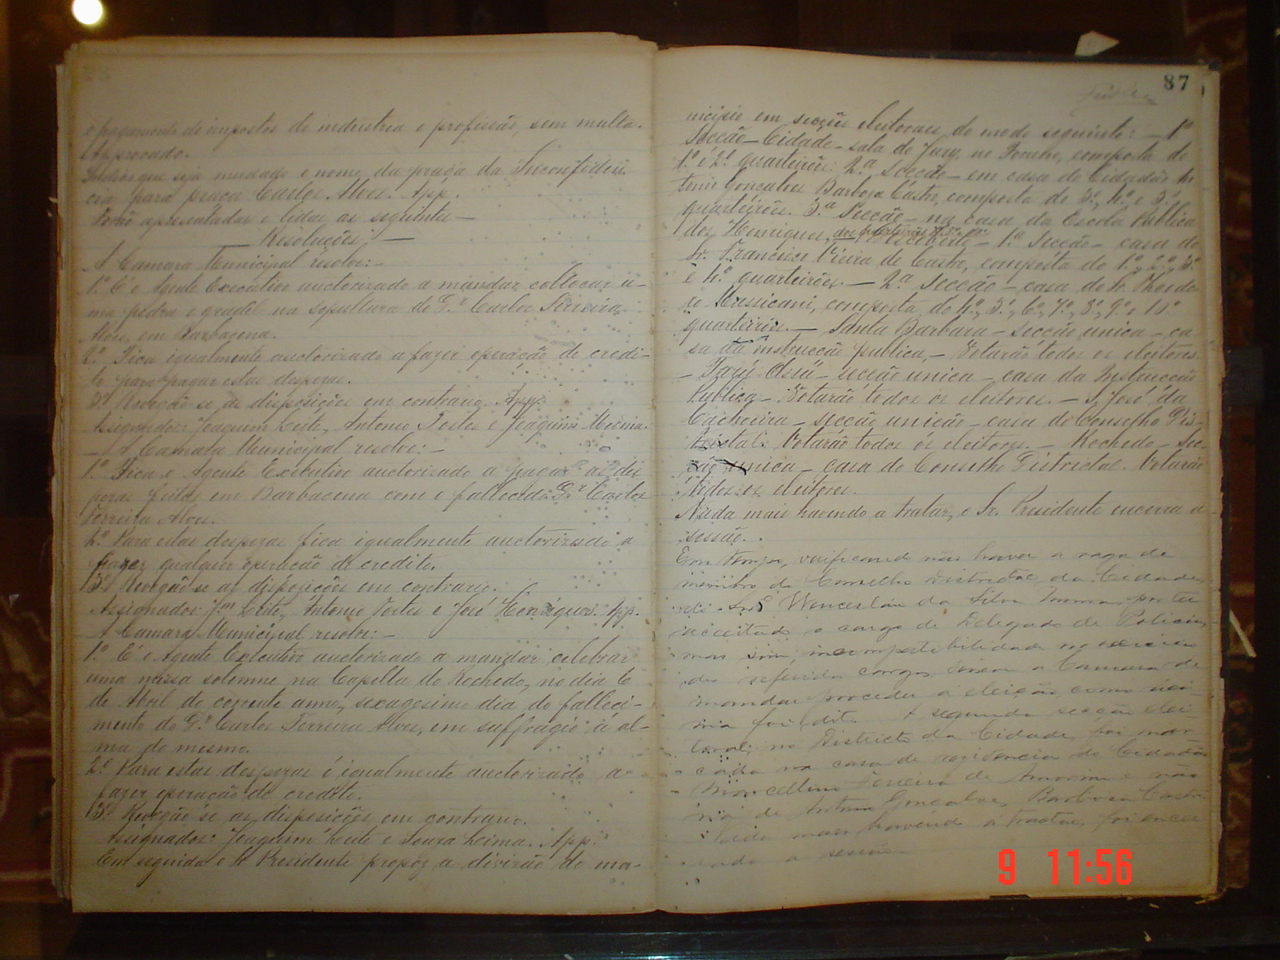 o pagamento de impostos de industria e profissão, sem multa.
Approvado.
que seja mudado o nome, da praça da Inconfiden-
cia para praça Carlos Alves. App.
Forão apresentadas e lidas as seguintes
— Resoluções: —
A Camara Municipal resolve: —
1º É o Agente Executivo auctorizado a mandar collocar u-
ma pedra e gradil na sepultura do Dr. Carlos Ferreira
Alves, em Barbacena.
2º Fica igualmente auctorizado a fazer operação de credi-
to para pagar estas despezas.
3º Revogão-se as disposições em contrario. App.
Assignados: Joaquim Leite, Antonio Fortes e Joaquim
— A Camara Municipal resolve: —
1º Fica o Agente Executivo auctorizado a pagar as des
pezas feitas em Barbacena com o fallecido Dr. Carlos
Ferreira Alves.
2º Para estas despezas fica igualmente auctorizado a
fazer qualquer operação de credito.
3º Revogão-se as disposições em contrario.
Assignados: Jm. Leite, Antonio Fortes e José Henriques. App.
A Camara Municipal resolve: —
1º É o Agente Executivo auctorizado a mandar celebrar
uma missa solemne na Capella do Rochedo, no dia 6
de Abril do corrente anno, sexagesimo dia do falleci-
mento do Dr. Carlos Ferreira Alves, em suffragio á al-
ma do mesmo.
2º Para estas despezas é igualmente auctorizado a
fazer operação de credito.
3º Revogão-se as disposições em contrario.
Assignados: Joaquim Leite e Souza Lima. App.
Em seguida o Sr. Presidente propôz a divisão do mu-
87
nicipio em secções eleitoraes, do modo seguinte: — 1ª
Secção — Cidade — sala do Jury, no Forum, composta do
1º e 2º quarteirões. 2ª Secção — em casa do Cidadão An
tonio Gonçalves Barbosa Castro, composta do 3º, 4º e 5º
quarteirões. 3ª Secção — na casa da Escola Publica
dos Henriques, dos quarteirões — 1ª Secção — casa do
Sr. Francisco Vieira de Castro, composta do 1º, 2º, 3º
e 4º quarteirões. — 2ª Secção — casa do Sr.
composta do
quarteirões. — Santa Barbara — secção unica — ca
sa da instrucção publica — Votarão todos os eleitores
— secção unica — casa da Instrucção
Publica — Votarão todos os eleitores. — S. José da
Cachoeira — secção unica — casa do Conselho Dis-
trictal. Votarão todos os eleitores. — Rochedo — sec-
ção unica — casa do Conselho Districtal. Votarão
todos os eleitores.
Nada mais havendo a tratar, o Sr. Presidente encerra a
sessão.
Em tempo, verificando haver a vaga de
membro do Conselho Districtal da Cidade,
do Snr. Wencesláu da Silva por ter
acceitado o cargo de Delegado de Policia,
mas sim, incompatibilidade no exercicio
do referido cargo, a Camara de
mandar proceder a eleição, como aci-
ma foi dito. A segunda secção elei-
toral, no Districto da Cidade, foi mar-
cada na casa de residencia do Cidadão
Marcellino Ferreira de e não
na de Antonio Gonçalves Barbosa Castro
Nada mais havendo a tratar, foi encer
rada a sessão.
9 11:56